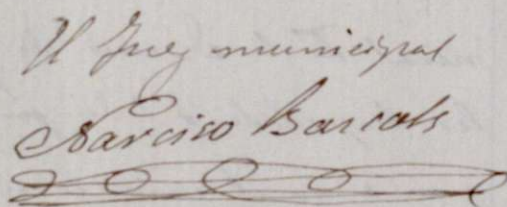 El Juez municipal
Narciso Barcals